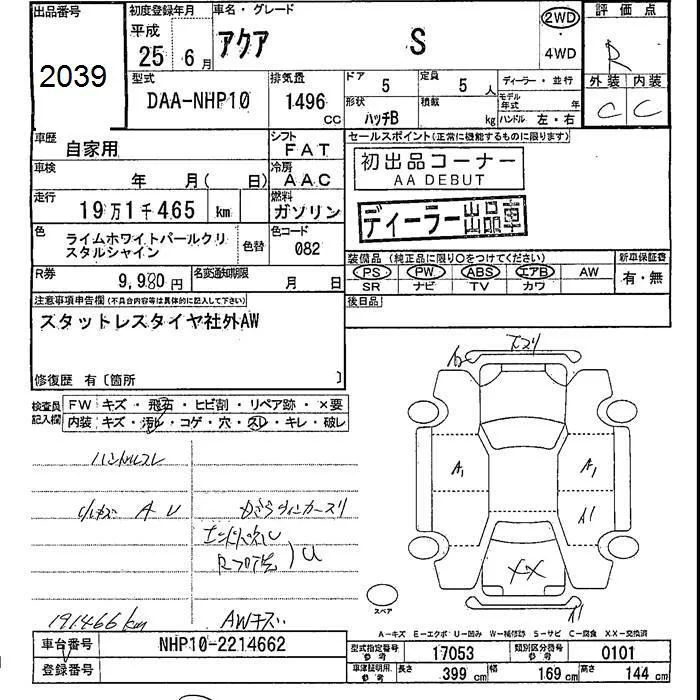 出品番号
2039
初度登録年月
平成
25年 6月
車名・グレード
アクア S
2WD
・
4WD
評価点
R
外装 内装
C C
型式
DAA-NHP10
排気量
1496 CC
ドア 5
定員 5人
形状 ハッチB
積載 kg
ディーラー・並行
モデル年式 年
ハンドル 左・右
車歴
自家用
シフト
FAT
車検
年 月( 日)
冷房
AAC
走行
19万1千465 km
燃料
ガソリン
色
ライムホワイトパールクリスタルシャイン
色替
色コード
082
R券
9,980円
名変通知期限
月 日
セールスポイント(正常に機能するものに限ります)
初出品コーナー
AA DEBUT
ディーラー出品車
装備品 (純正品に限り○をつけてください)
PS PW ABS エアB AW
SR ナビ TV カワ
新車保証書
有・無
後日品
注意事項申告欄(不具合内容等は具体的に記入して下さい)
スタットレスタイヤ社外AW
修復歴 有〔箇所 〕
検査員記入欄
FW キズ・飛石・ヒビ割・リペア跡・×要
内装 キズ・汚れ・コゲ・穴・スレ・キレ・破レ
ハンドルスレ
小キズ A U
191466km
U
AWキズ
A1
A1
XX
スペア
A-キズ E-エクボ U-凹み W-補修跡 S-サビ C-腐食 XX-交換済
車台番号
NHP10-2214662
登録番号
型式指定番号 参考
17053
類別区分番号 参考
0101
車庫証明用 参考
長さ 399 cm
幅 169 cm
高さ 144 cm